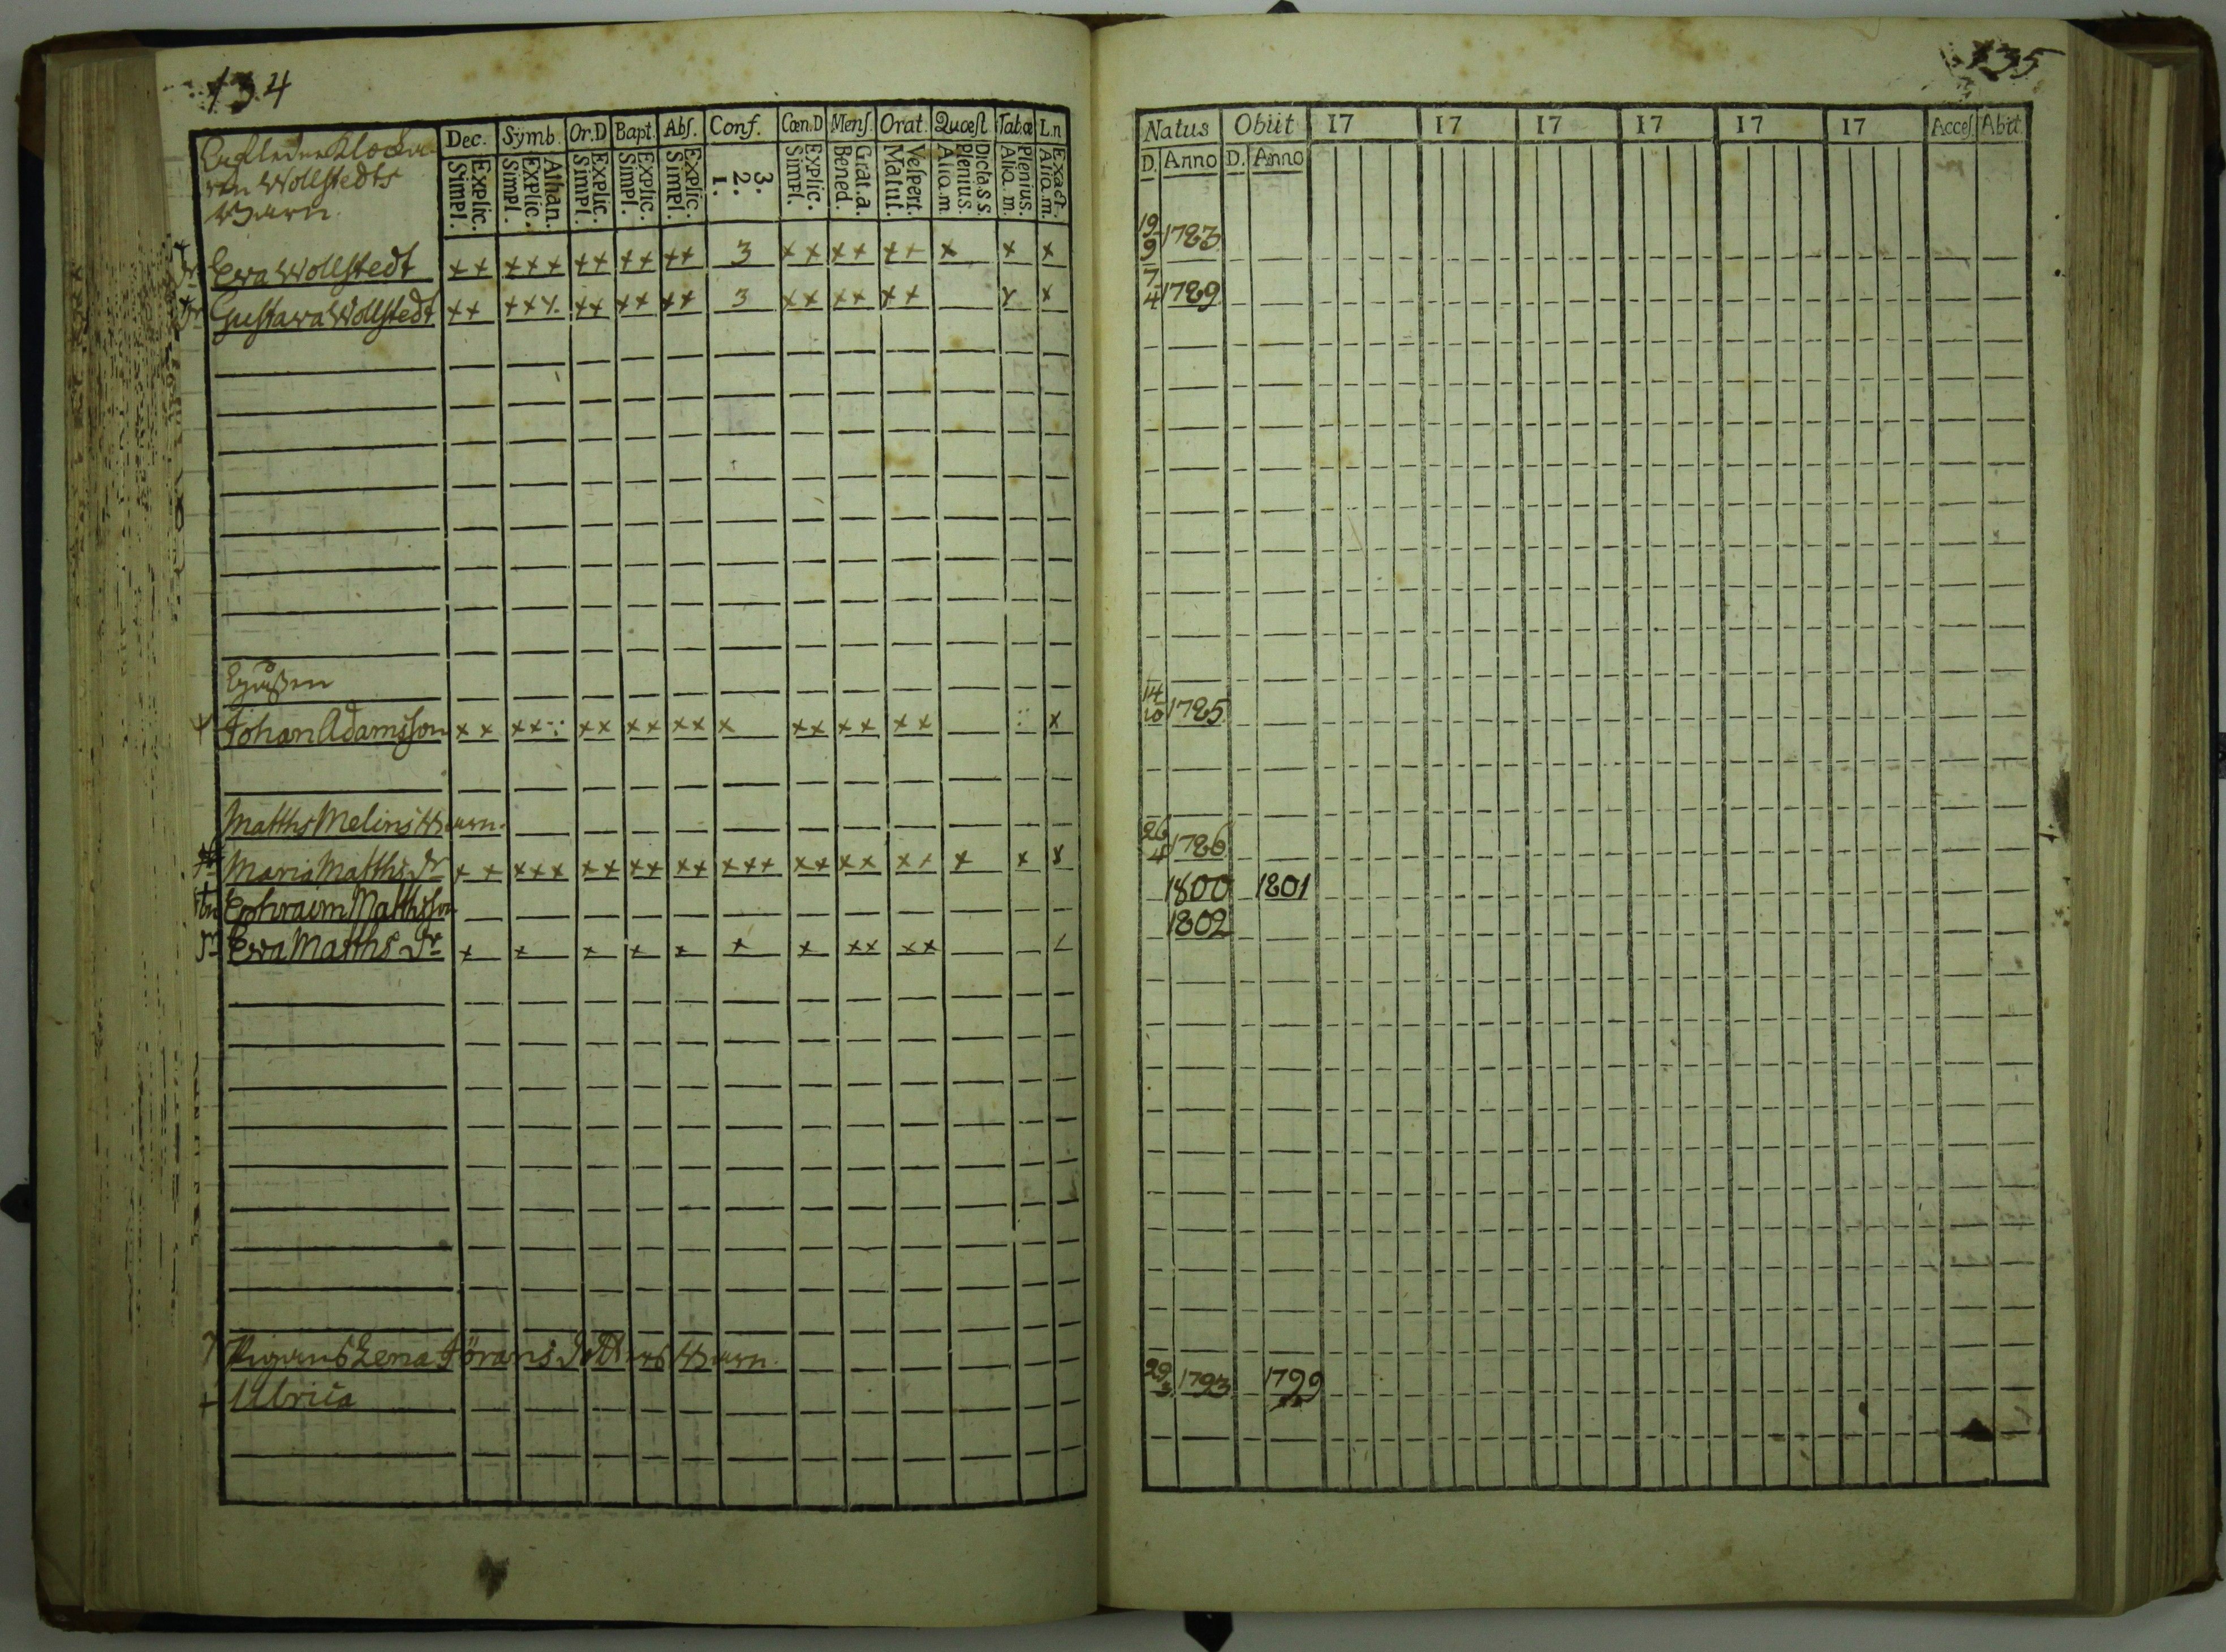 134
Dec. Sÿmb. Or.D Bapt. Abſ. Conf. Cœn.D Menſ. Orat. Quœſt Tab.œ L.n
Klocka
Wollstedts
Barn.
Simpl. Explic. Simpl. Explic. Athan. Simpl. Explic. Simpl. Explic. Simpl. Explic. 1. 2. 3. Simpl. Explic. Bened. Grat.a. Matut. Veſpert. Alia.m. Plenius. Dicta.S S. Alia.m. Plenius. Alia.m. Exact.
dr Ewa Wollstedt ×× ××× ×× ×× ×× 3 ×× ×× ×× × × ×
dr Gustava Wollstedt ×× ××× ×× ×× ×× 3 ×× ×× ×× × ×
Johan Adamsson ×× ×× ×× ×× ×× × ×× ×× ×× ×
Matths Melins Barn.
Maria Matths dr ×× ××× ×× ×× ×× ××× ×× ×× ×× × × ×
Ephraim Matthsson
Ewa Matths dr × × × × × × × ×× ××
Pigans Lena Jörans Dotters Barn.
Ulrica
135
Natus Obiit 17 17 17 17 17 17 Acceſ. Abiit.
D. Anno D. Anno
19/9 1783
7/4 1789
14/10 1785
26/4 1786
1800 1801
1802
29/3 1793 1799